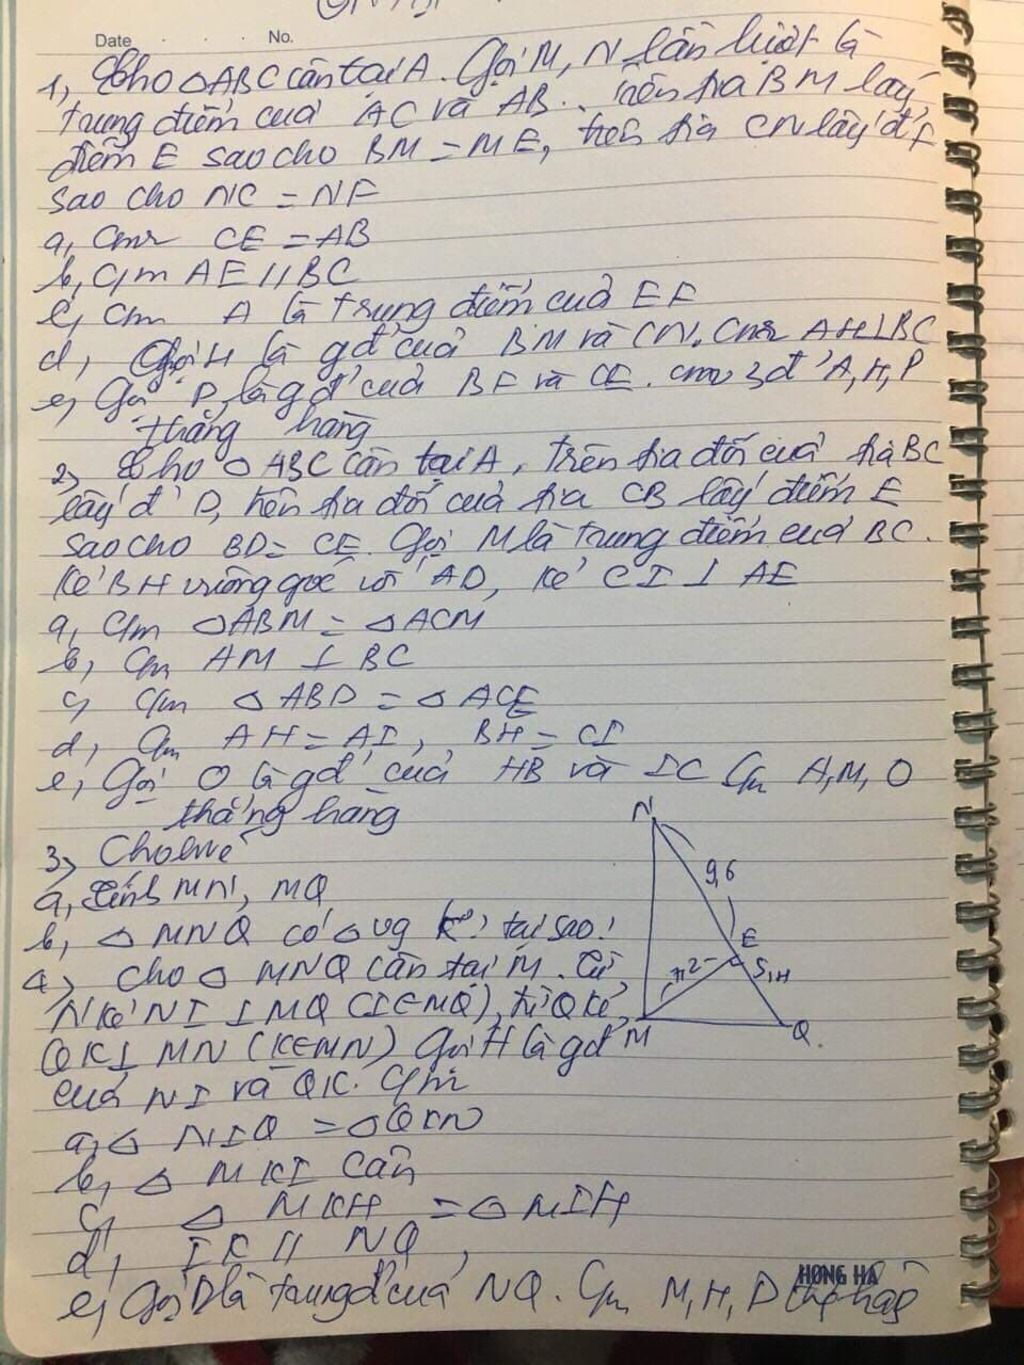 Date . . . No.
1, Cho △ABC cân tại A. Gọi M, N lần lượt là
trung điểm của AC và AB. Trên tia BM lấy
điểm E sao cho BM = ME, trên tia CN lấy đ' F
sao cho NC = NF
a, Cmr CE = AB
b, C/m AE // BC
c, Cm A là trung điểm của EF
d, Gọi H là gđ' của BM và CN. Cmr AH ⊥ BC
e, Gọi P là gđ' của BF và CE. cmr 3 đ' A, H, P
thẳng hàng
2, Cho △ ABC cân tại A, trên tia đối của tia BC
lấy đ' D, trên tia đối của tia CB lấy điểm E
sao cho BD = CE. Gọi M là trung điểm của BC.
Kẻ BH vuông góc với AD, kẻ CI ⊥ AE
a, C/m △ABM = △ACM
b, Cm AM ⊥ BC
c, C/m △ ABD = △ ACE
d, Cm AH = AI, BH = CI
e, Gọi O là gđ' của HB và IC Cm A, M, O
thẳng hàng
3, Cho hvẽ
a, Tính MN, MQ
b, △ MNQ có △ vg k°? tại sao?
N
9,6
E
5,4
M
Q
4, Cho △ MNQ cân tại M. Từ
N kẻ NI ⊥ MQ (I∈MQ), từ Q kẻ
QK ⊥ MN (K∈MN) Gọi H là gđ'
của NI và QK. C/m
a, △ NIQ = △QKN
b, △ MKI cân
c, △ MKH = △ MIH
d, IK // NQ
HONG HA
e, Gọi D là trung đ' của NQ. Cm M, H, D thẳng hàng